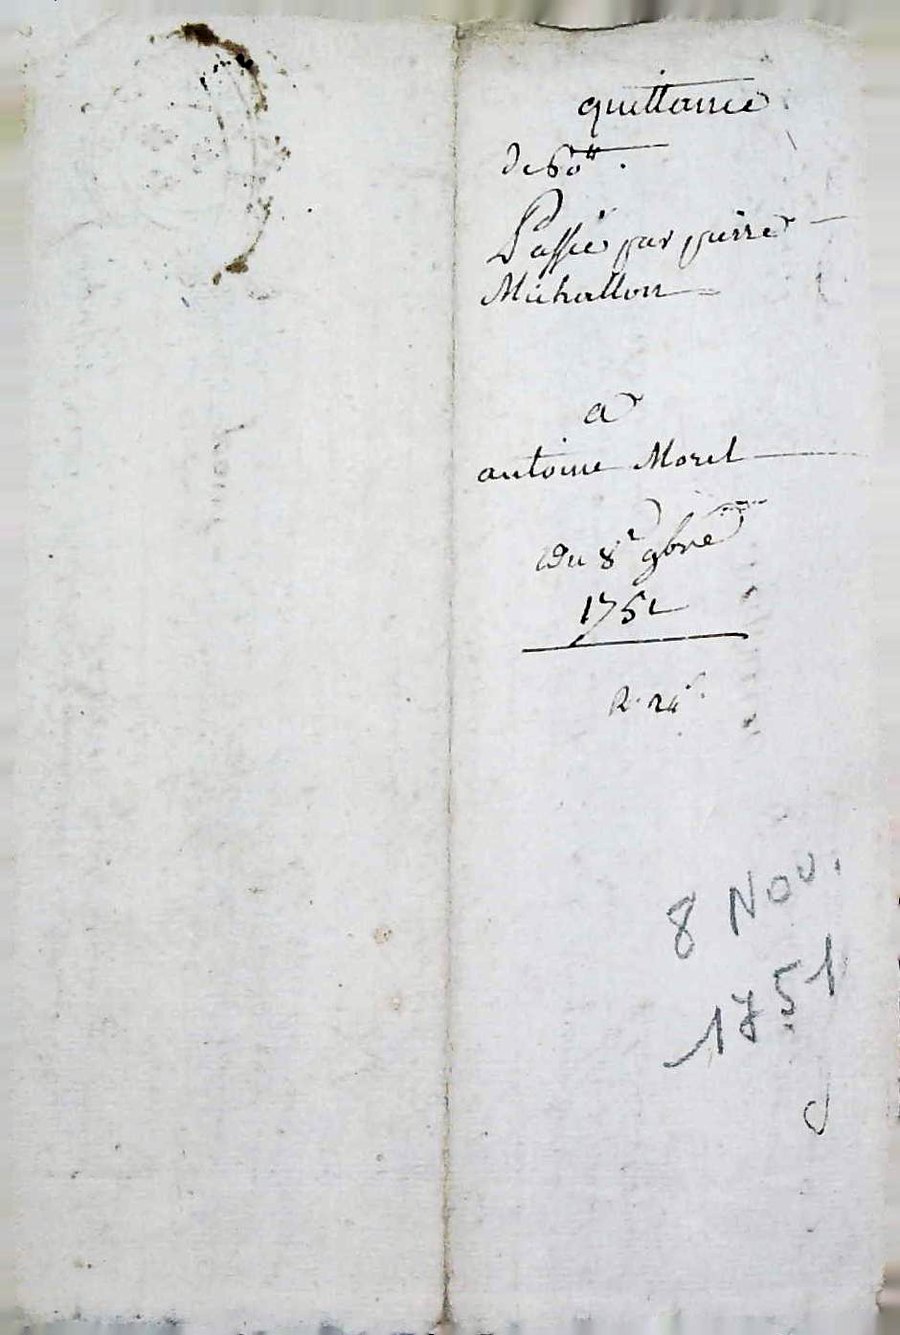 quittance
de 60#.
Passée par pierre
Michallon
a
antoine Morel
Du 8e 9bre
1751
R. 24s.
8 Nov.
1751